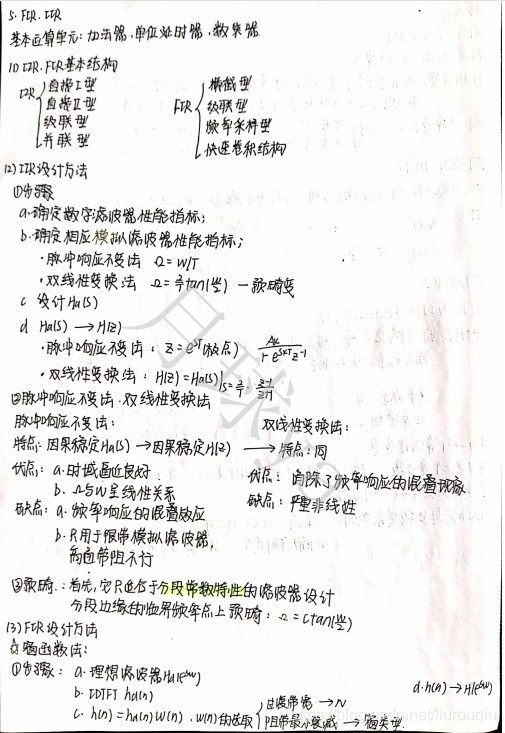 5. FIR. IIR
基本运算单元：加法器、单位延时器、数乘器
(1) IIR. FIR基本结构
IIR 直接I型 直接II型 级联型 并联型
FIR 横截型 级联型 频率采样型 快速卷积结构
(2) IIR设计方法
①步骤
a. 确定数字滤波器性能指标；
b. 确定相应模拟滤波器性能指标；
· 脉冲响应不变法 Ω=W/T
· 双线性变换法 Ω=2/T tan(w/2) — 预畸变
c 设计Ha(s)
d Ha(s) → H(z)
· 脉冲响应不变法：z=e^sT (极点)
· 双线性变换法：H(z)=Ha(s)|s=2/T·
②脉冲响应不变法、双线性变换法
脉冲响应不变法：
特点：因果稳定Ha(s) → 因果稳定H(z)
优点：a. 时域逼近良好
b. Ω与W呈线性关系
缺点：a. 频率响应的混叠效应
b. 只用于限带模拟滤波器，
高通带阻不行
双线性变换法：
→ 特点：同
优点：消除了频率响应的混叠现象
缺点：严重非线性
③预畸：首先，它只适合于分段常数特性的滤波器设计
分段边缘的临界频率点上预畸：Ω=Ctan(w/2)
(3) FIR设计方法
☆窗函数法：
①步骤：a. 理想滤波器Hd(e^jw)
b. IDTFT hd(n)
c. h(n)=hd(n)W(n)，W(n)的选取 过渡带宽 → N 阻带最小衰减 → 窗类型
d. h(n) → H(e^jw)
月球ya